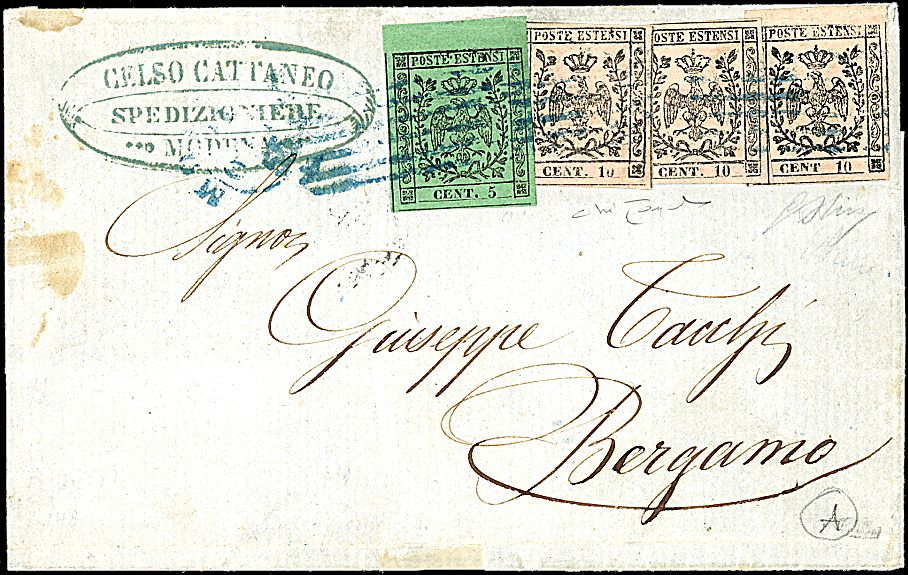 CELSO CATTANEO
SPEDIZIONIERE
MODENA
POSTE ESTENSI
CENT. 5
POSTE ESTENSI
CENT. 10
POSTE ESTENSI
CENT. 10
POSTE ESTENSI
CENT. 10
Signor
Giuseppe Tacchi
Bergamo
A